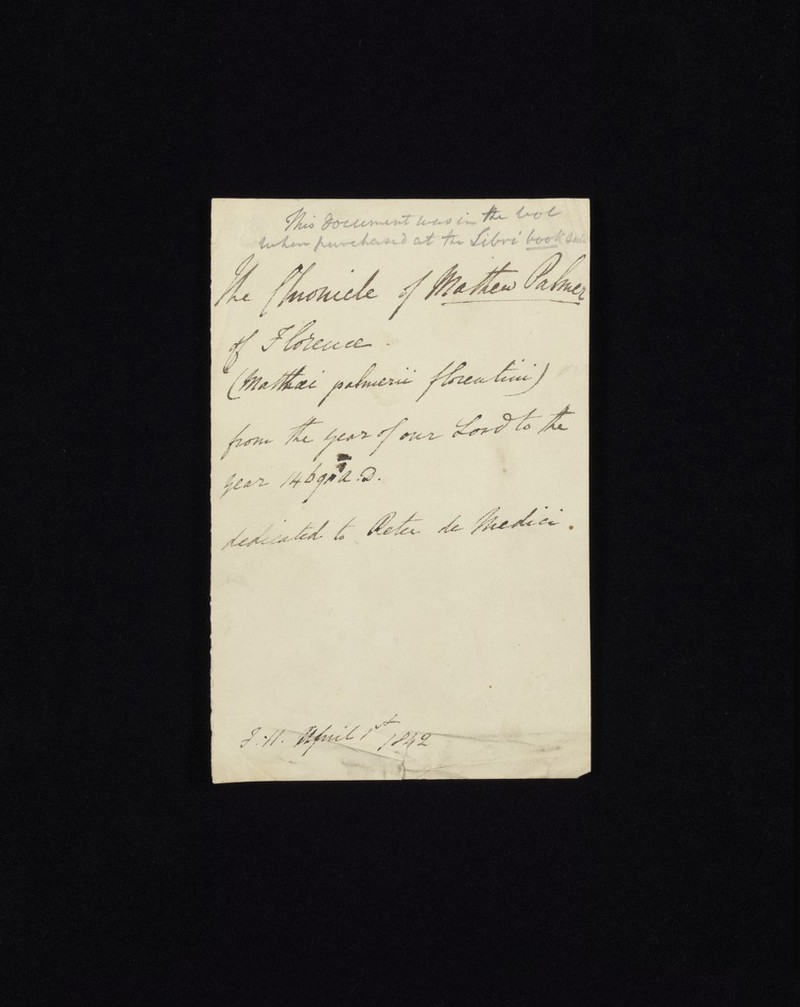 This document was in the vol
when purchased at the Libri book sale
The Chronicle of Mathew Palmer
of Florence
(Matthæi palmerii florentini)
from the year of our Lord to the
year 1469 A.D.
dedicated to Peter de Medici.
April 1st 1842